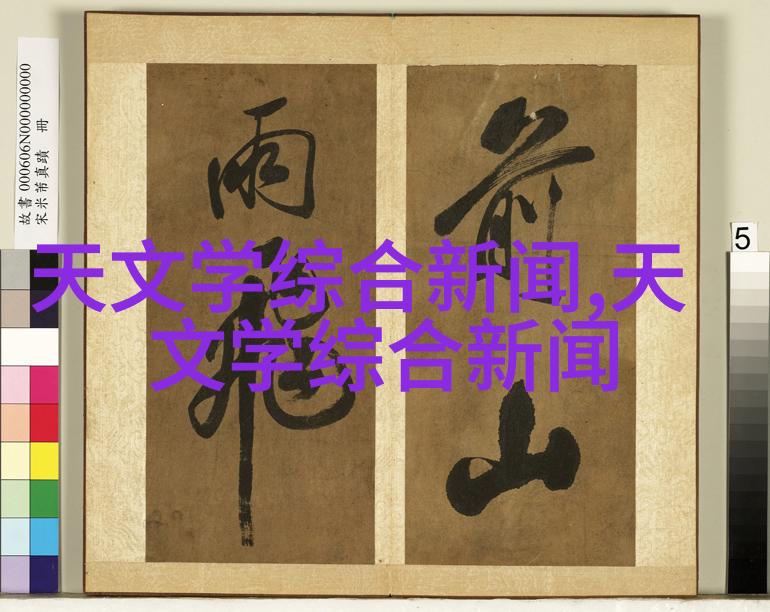 故書 000606N000000000
宋米芾真蹟 冊
前山
雨飛
5
天文学综合新闻,天
文学综合新闻